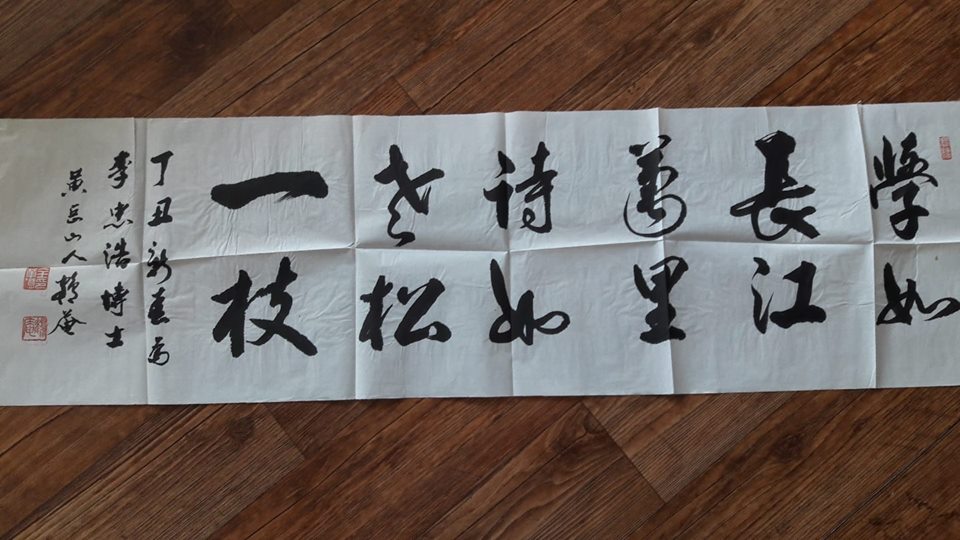 學如
長江
萬里
詩如
老松
一枝
丁丑新春為
李忠浩博士
黃山人菴